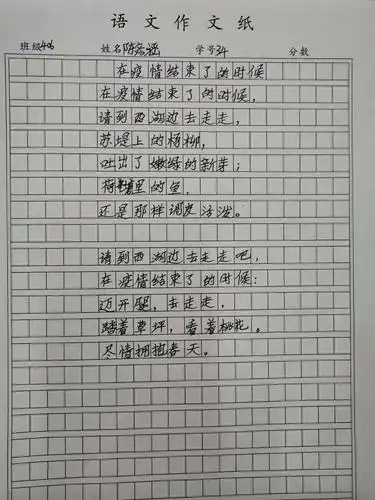 语文作文纸
班级406 姓名陈泓涵 学号34 分数
在疫情结束了的时候
在疫情结束了的时候，
请到西湖边去走走，
苏堤上的杨柳，
吐出了嫩绿的新芽；
里的鱼，
还是那样调皮活泼。
请到西湖边去走走吧，
在疫情结束了的时候：
迈开腿，去走走，
踏着草坪，看着桃花。
尽情拥抱春天。